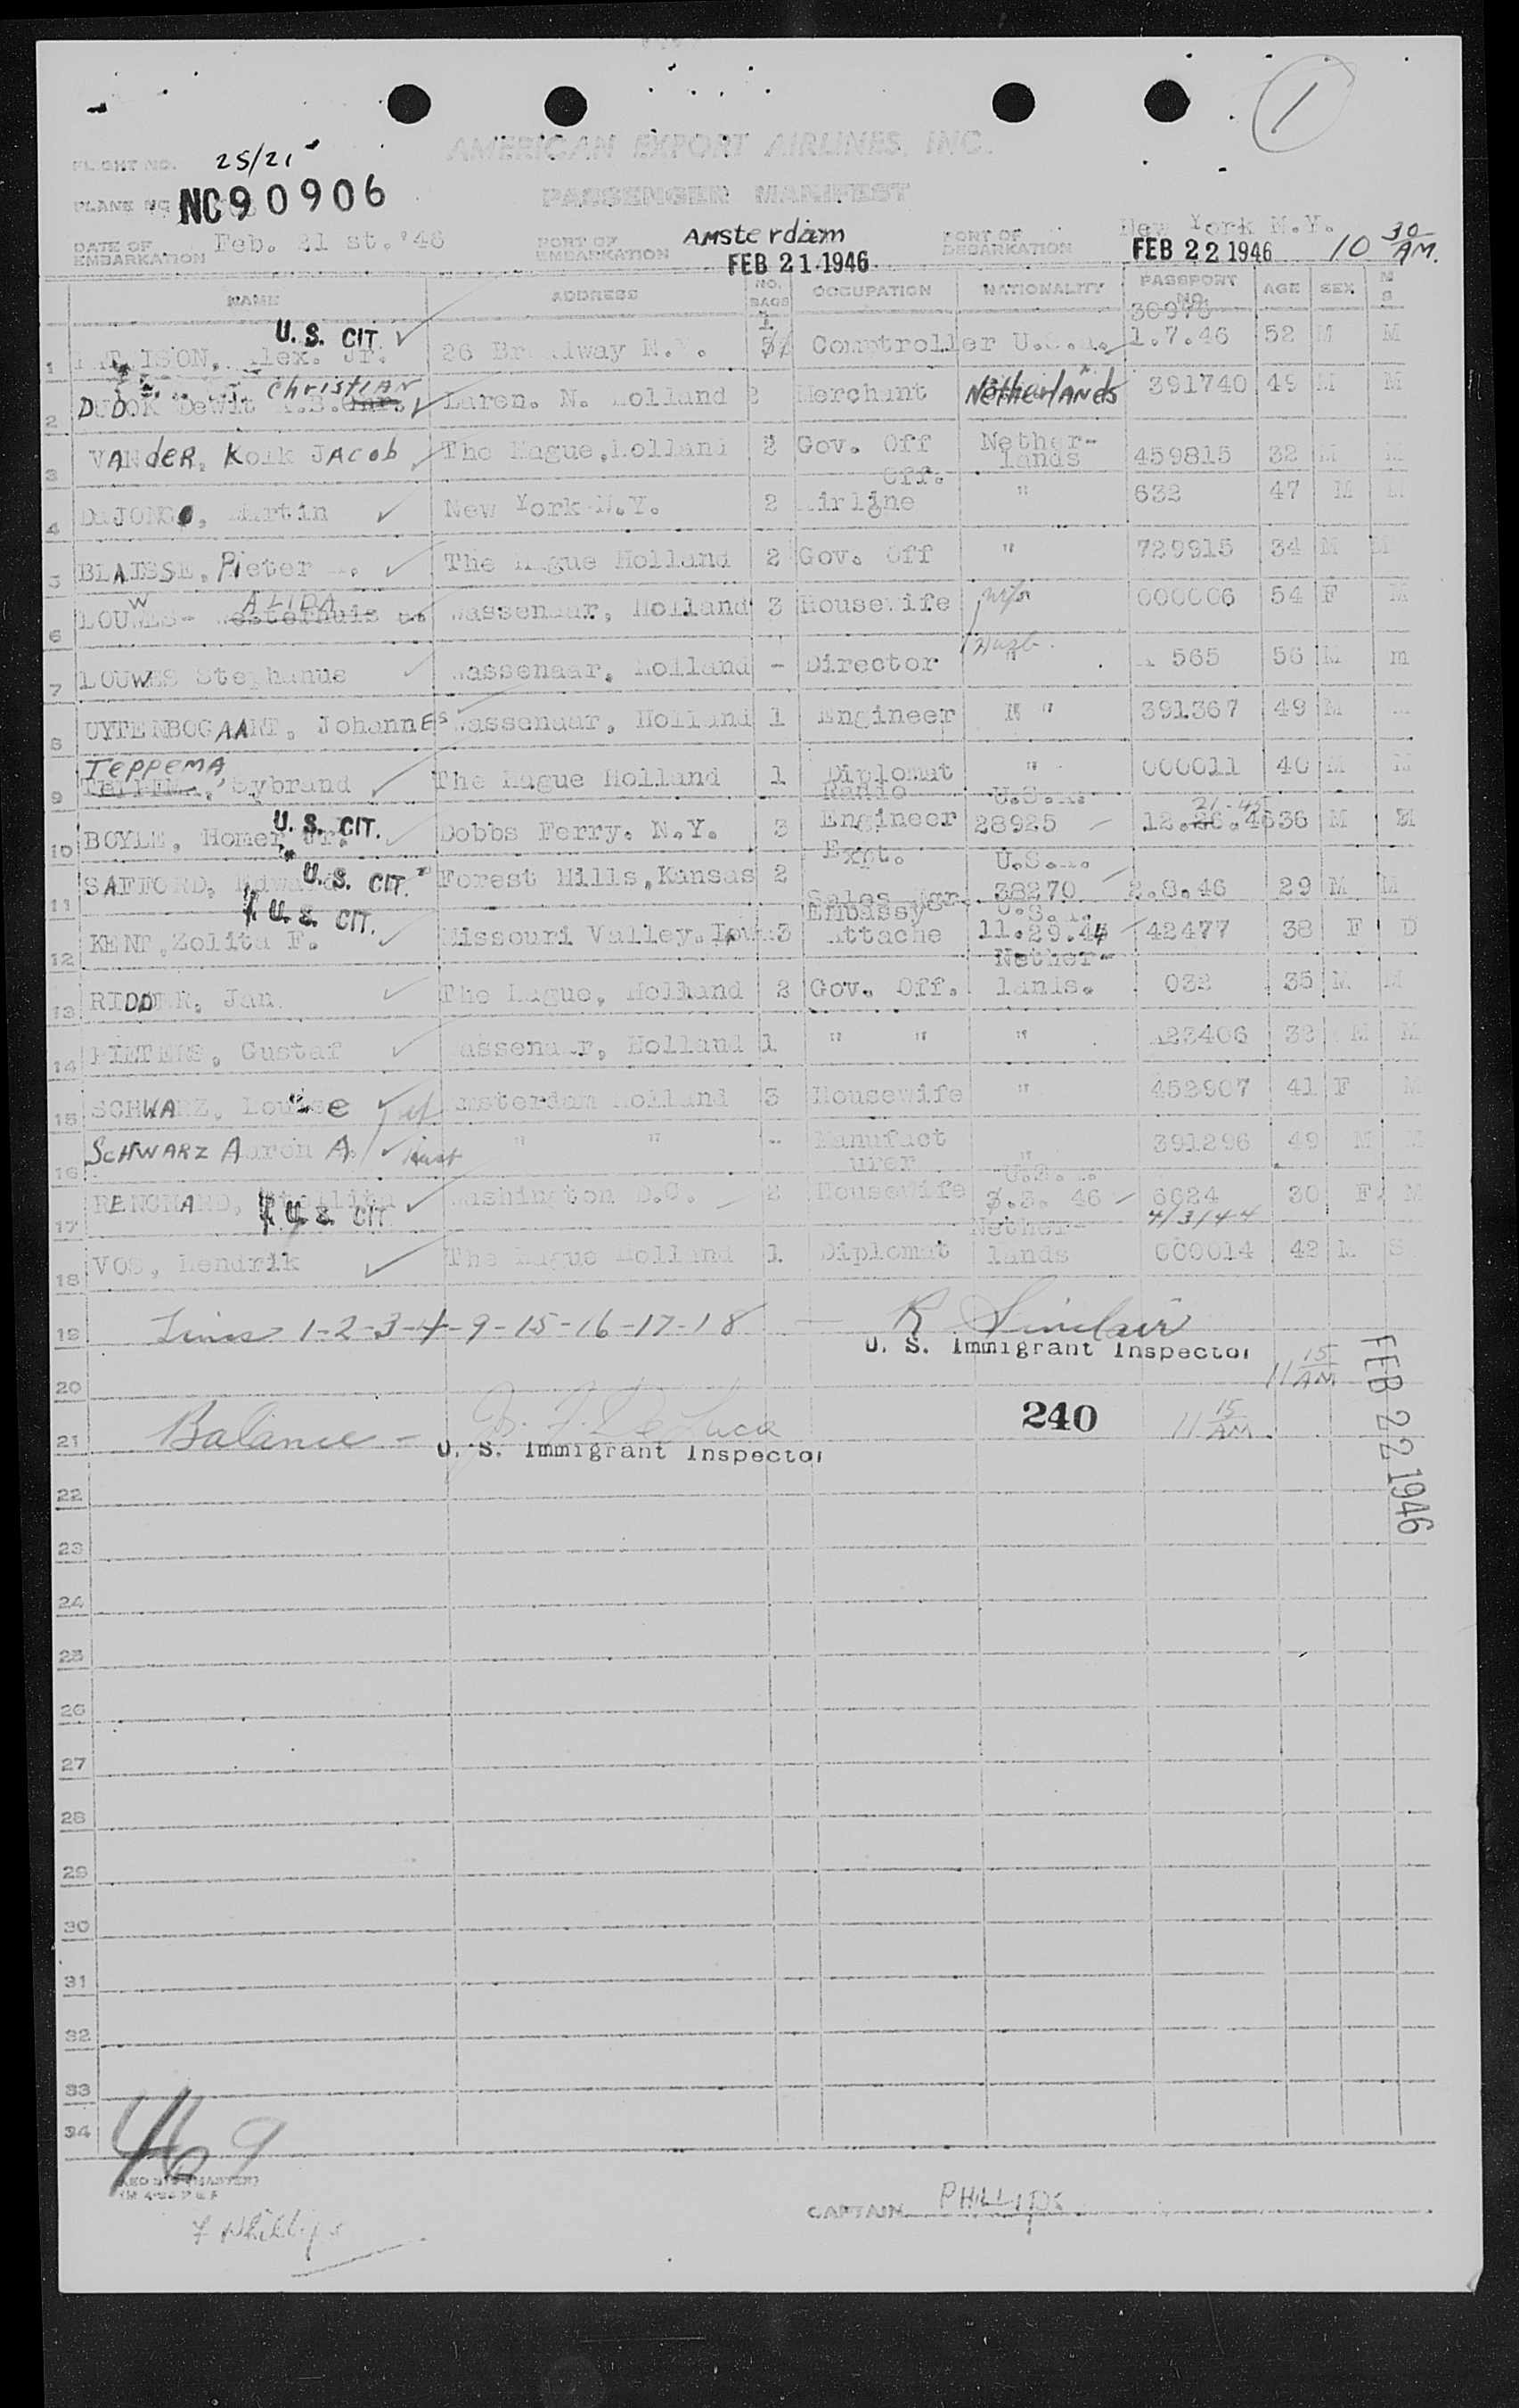 1
AMERICAN EXPORT AIRLINES, INC.
FLIGHT NO. 25/21
PASSENGER MANIFEST
PLANE NO NC90906
DATE OF EMBARKATION Feb. 21 st. '46 PORT OF EMBARKATION Amsterdam FEB 21 1946 PORT OF DEBARKATION New York N.Y. FEB 22 1946 10 30 AM.
NAME ADDRESS NO. BAGS OCCUPATION NATIONALITY PASSPORT NO. AGE SEX M S
U. S. CIT.
1 ISON, Alex. Jr. 26 Broadway N.Y. Comptroller U.S.A. 1.7.46 52 M M
Christian
2 DUDOK DeWit Laren. N. Holland 2 Merchant Netherlands 391740 49 M M
3 VANdER, Kolk JAcob The Hague, Holland 2 Gov. Off Netherlands 459815 32 M M
4 DeJONG, Martin New York N.Y. 2 Airline Off. " 632 47 M M
5 BLAISSE, Pieter The Hague Holland 2 Gov. Off " 729915 34 M M
W ALIDA
6 LOUWES- Westerhuis Wassenaar, Holland 3 Housewife 000006 54 F M
7 LOUWES Stephanus Wassenaar, Holland - Director " 565 56 M m
8 UYTENBOGAART, JohannEs Wassenaar, Holland 1 Engineer " 391367 49 M
TEPPEMA
9 Sybrand The Hague Holland 1 Diplomat " 000011 40 M M
U. S. CIT.
10 BOYLE, Homer Jr. Dobbs Ferry. N.Y. 3 Radio Engineer U.S.A. 28925 21-45 12.26.46 36 M M
U. S. CIT.
11 SAFFORD, Edward Forest Hills, Kansas 2 Expt. Sales Mgr. U.S.A. 38270 2.8.46 29 M M
U. S. CIT.
12 KENT, Zolita F. Missouri Valley. Iowa 3 Embassy Attache U.S.A. 11.29.44 42477 38 F D
13 RIDDER, Jan The Hague, Holland 2 Gov. Off. Nether-lands. 032 35 M M
14 PIETERS, Gustaf Wassenaar, Holland 1 " " " A23406 32 M M
15 SCHWARZ, Louise Amsterdam Holland 3 Housewife " 452907 41 F M
16 SCHWARZ Aaron A. " " - Manufacturer " 391296 49 M M
17 Washington D.C. 2 Housewife U.S.A. 3.3. 46 6624 4/3/44 30 F M
U. S. CIT.
18 VOS, Hendrik The Hague Holland 1 Diplomat Nether-lands 000014 42 M S
19 Lines 1-2-3-4-9-15-16-17-18 — R Sinclair
U. S. Immigrant Inspector
11 15 AM
FEB 22 1946
20
21 Balance - De Luca 240 11 15 AM
U. S. Immigrant Inspector
22
23
24
25
26
27
28
29
30
31
32
33
34
469
CAPTAIN PHILLIPS
F Phillips